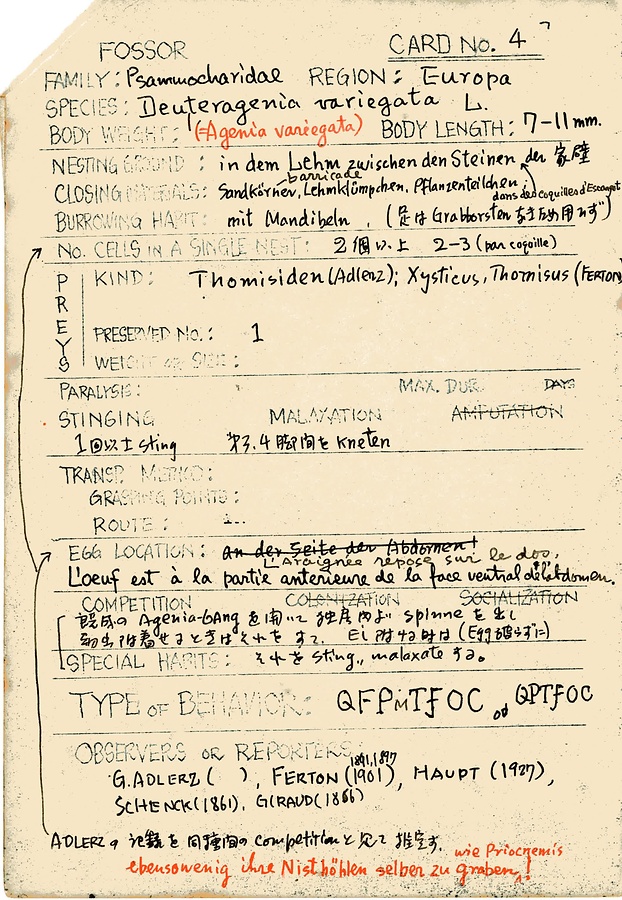 FOSSOR CARD No. 4
FAMILY: Psammocharidae REGION: Europa
SPECIES: Deuteragenia variegata L.
BODY WEIGHT: (=Agenia variegata) BODY LENGTH: 7-11 mm.
NESTING GROUND: in dem Lehm zwischen den Steinen der 家壁
barricade
CLOSING MATERIALS: Sandkörner, Lehmklümpchen, Pflanzenteilchen
dans des coquilles d'Escargot
BURROWING HABIT: mit Mandibeln, (足は Grabborsten なきため用ひず)
No. CELLS IN A SINGLE NEST: 2個以上 2-3 (par coquille)
PREYS
KIND: Thomisiden (Adlerz); Xysticus, Thomisus (FERTON)
PRESERVED No.: 1
WEIGHT OR SIZE:
PARALYSIS: MAX. DUR. DAYS
STINGING MALAXATION AMPUTATION
1回以上 sting 第3.4脚間を kneten
TRANSP. METHOD:
GRASPING POINTS:
ROUTE:
EGG LOCATION: an der Seite der Abdomen!
L'Araignée repose sur le dos,
L'oeuf est à la partie anterieure de la face ventral de l'abdomen.
COMPETITION COLONIZATION SOCIALIZATION
既成の Agenia-Gang を開いて 独房内より spinne を出し
(Egg破らずに)
SPECIAL HABITS: それを sting, malaxate する。
TYPE OF BEHAVIOR: QFPMTfOC od QPTfOC
OBSERVERS OR REPORTERS:
1891, 1897
G. ADLERZ ( ), FERTON (1901), HAUPT (1927),
SCHENCK (1861), GIRAUD (1866)
ADLERZの記録を同種間の competition と見て推定す.
wie Priocnemis
ebensowenig ihre Nisthöhlen selber zu graben!